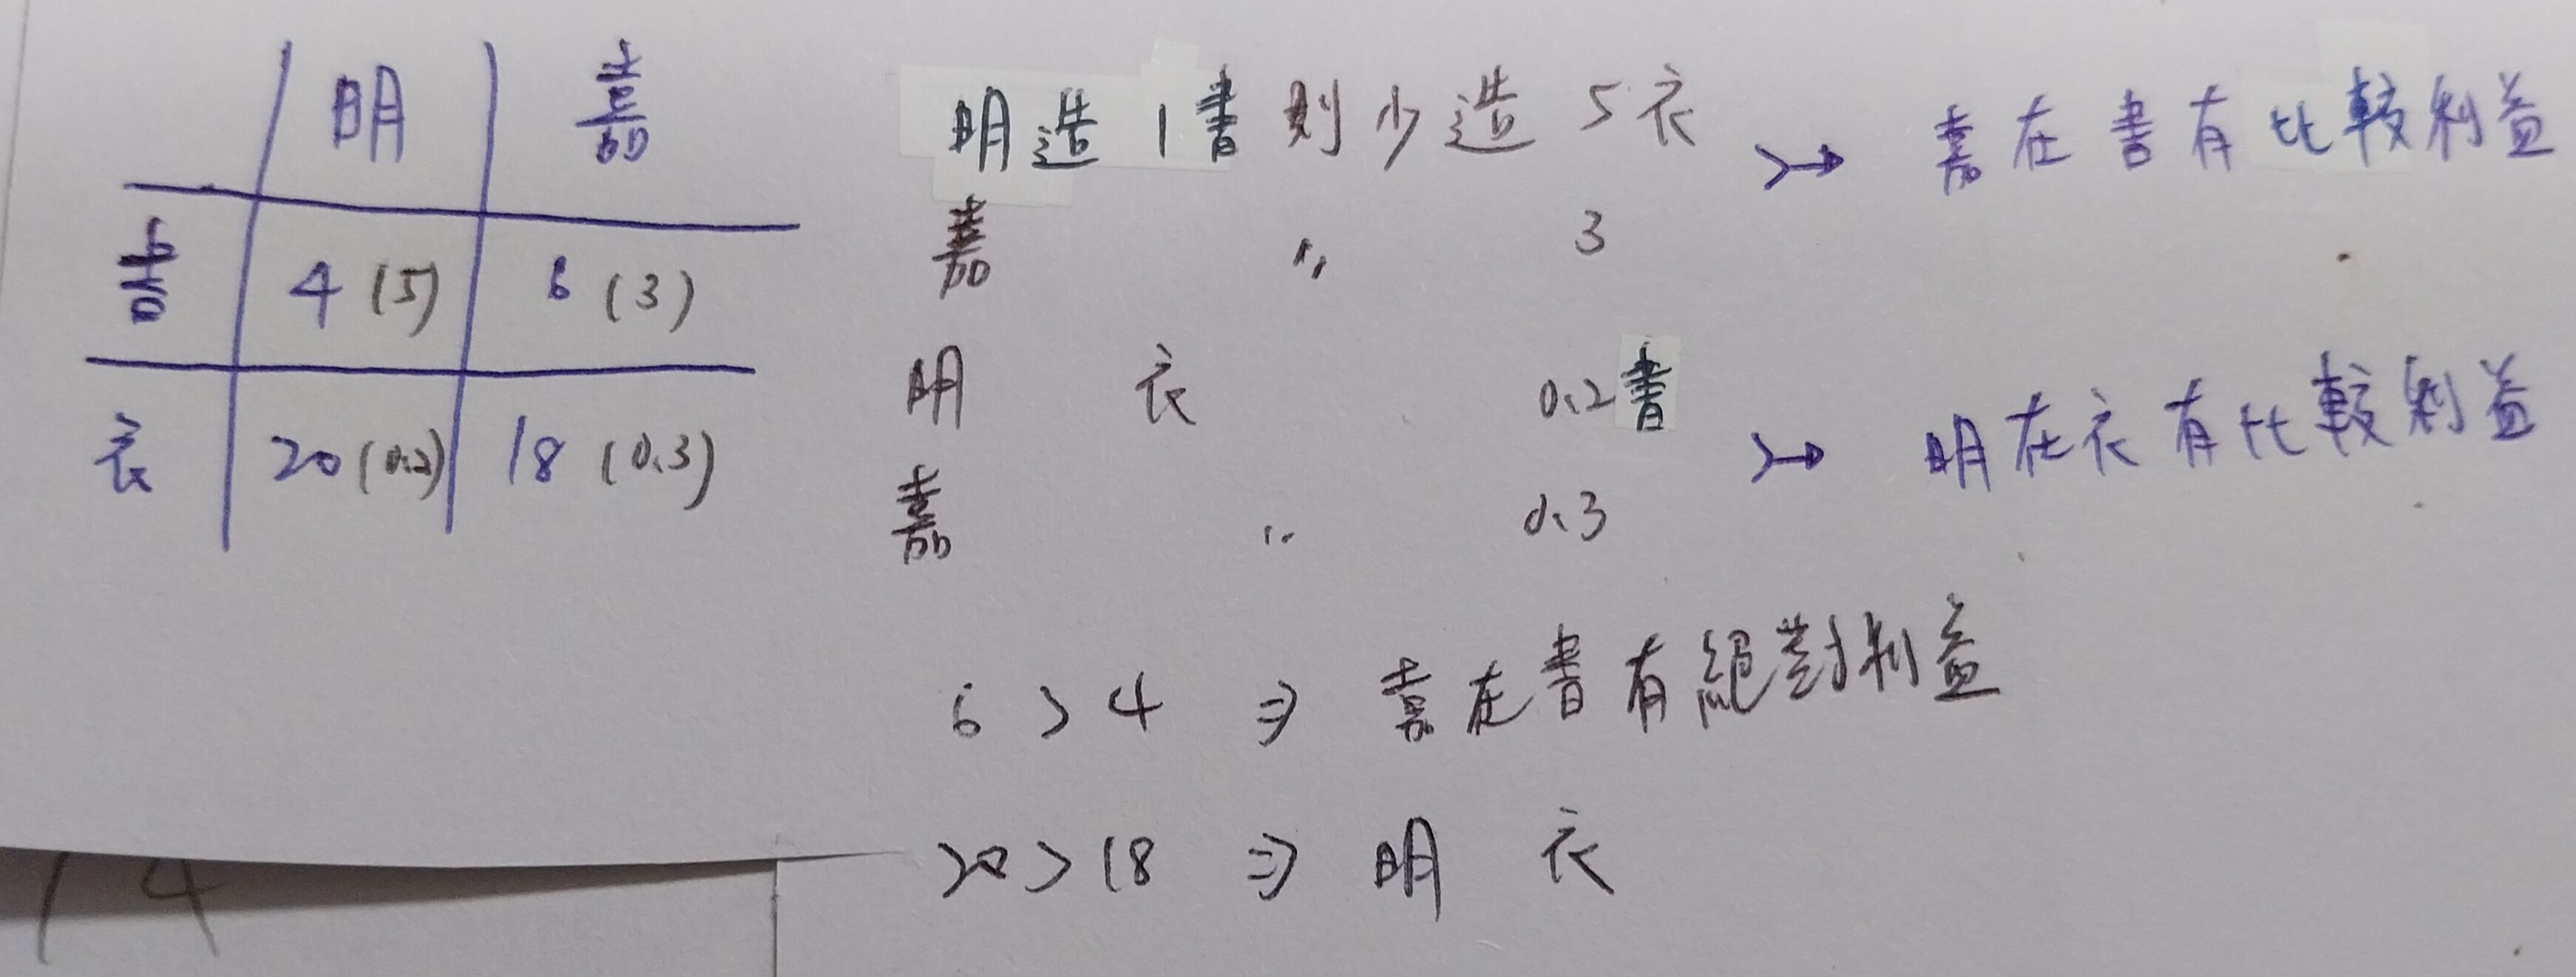 明 嘉
書 4 (5) 6 (3)
衣 20 (0.2) 18 (0.3)
明造1書則少造5衣
嘉 〃 3
→ 嘉在書有比較利益
明 衣 0.2書
嘉 〃 0.3
→ 明在衣有比較利益
6 > 4 ⇒ 嘉在書有絕對利益
20 > 18 ⇒ 明 衣
14